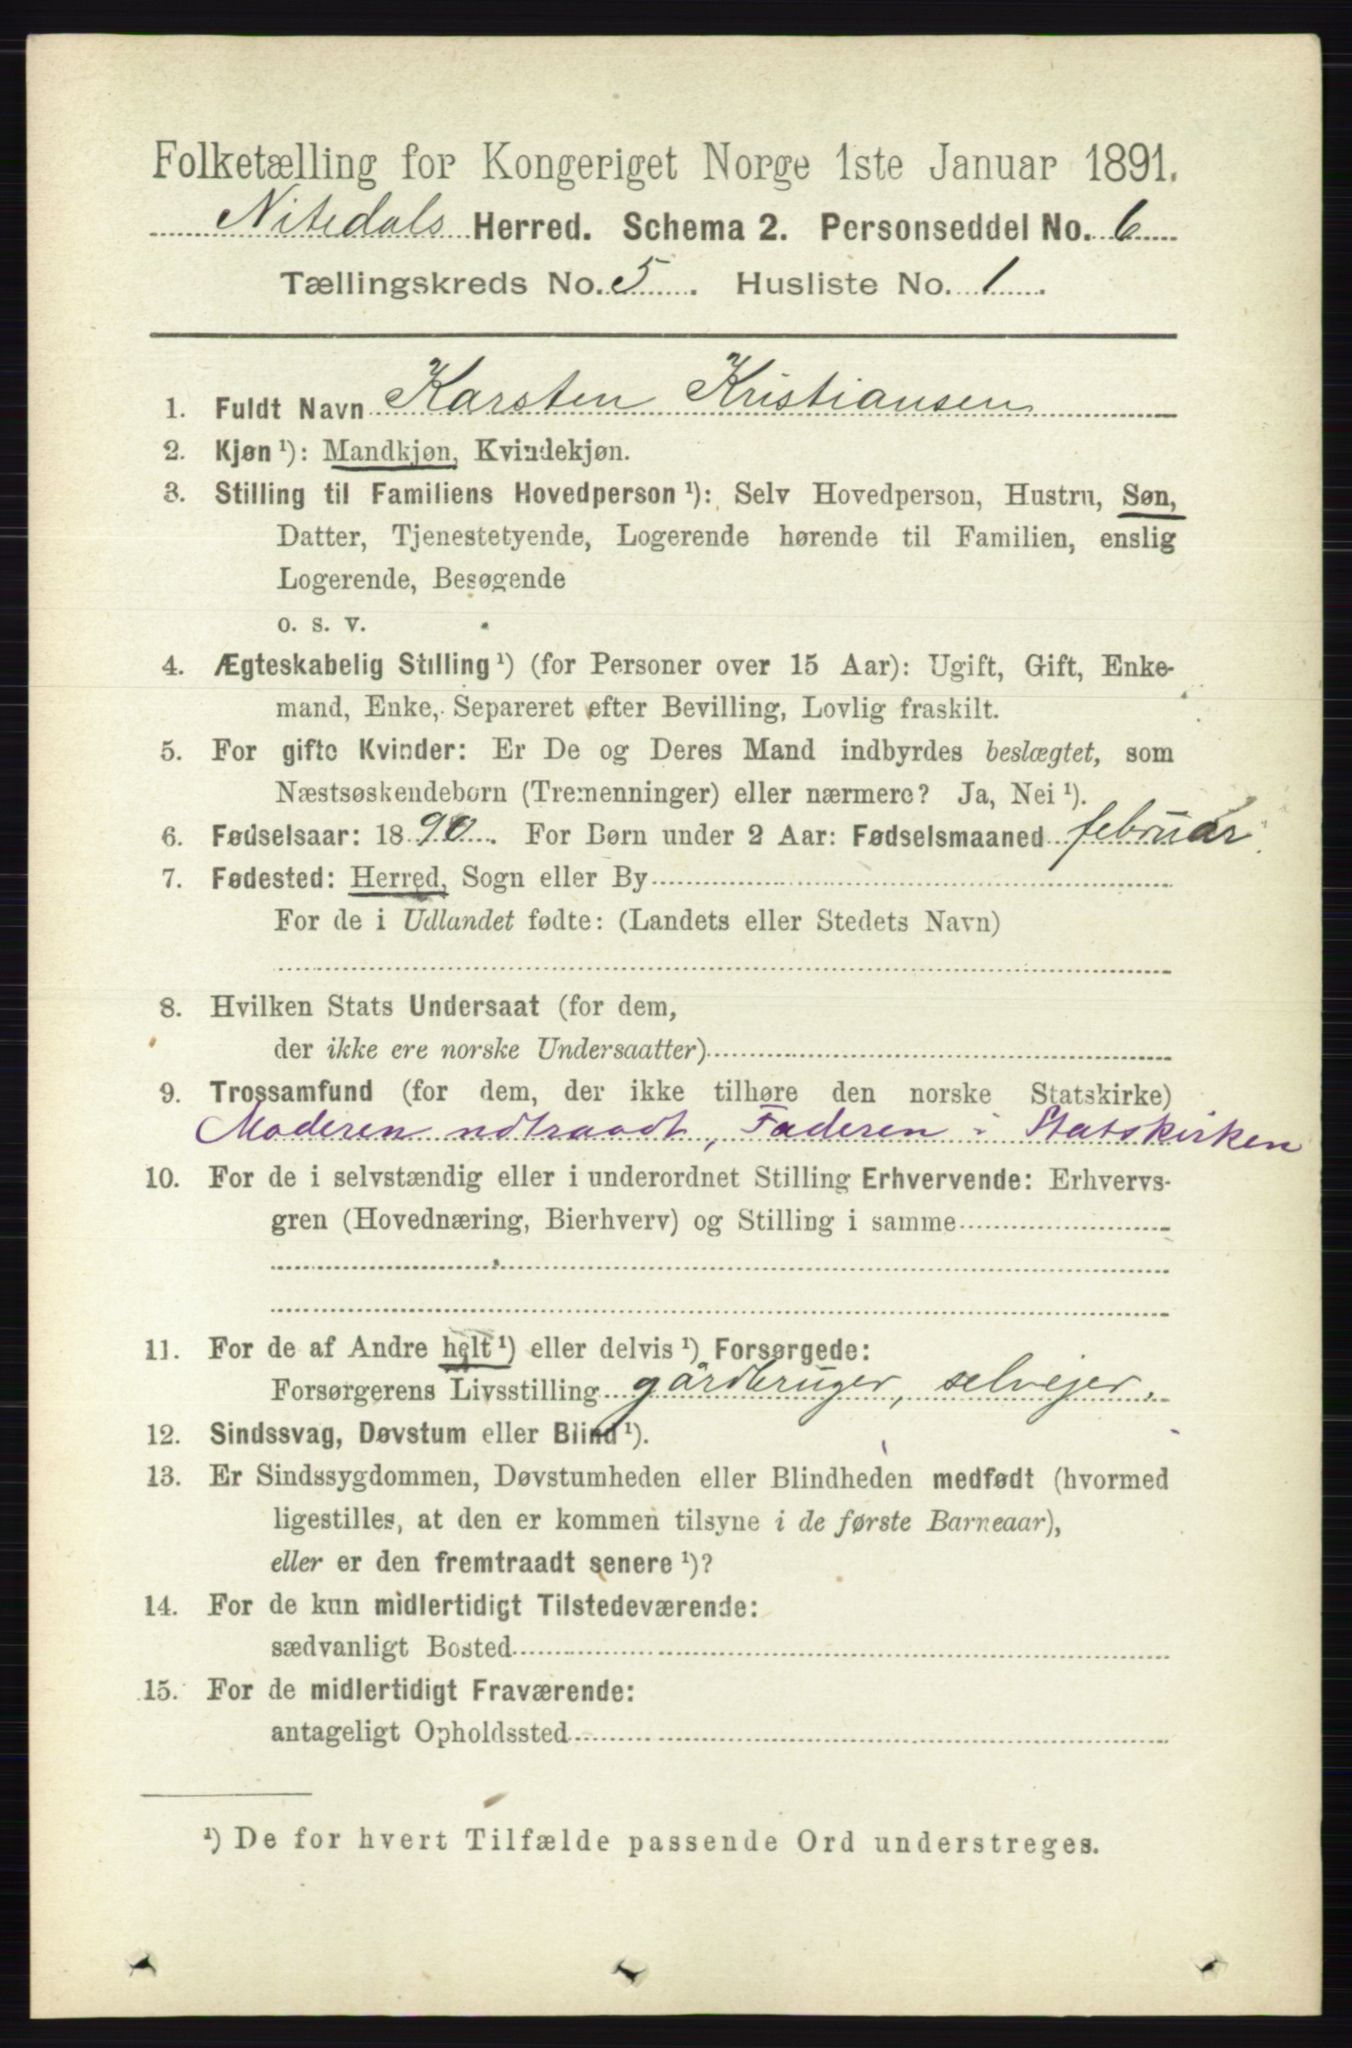 Folketælling for Kongeriget Norge 1ste Januar 1891.
Nitedals Herred. Schema 2. Personseddel No. 6
Tællingskreds No. 5. Husliste No. 1.
1. Fuldt Navn Karsten Kristiansen
2. Kjøn ¹): Mandkjøn, Kvindekjøn.
3. Stilling til Familiens Hovedperson ¹): Selv Hovedperson, Hustru, Søn,
Datter, Tjenestetyende, Logerende hørende til Familien, enslig
Logerende, Besøgende
o. s. v.
4. Ægteskabelig Stilling ¹) (for Personer over 15 Aar): Ugift, Gift, Enke-
mand, Enke, Separeret efter Bevilling, Lovlig fraskilt.
5. For gifte Kvinder: Er De og Deres Mand indbyrdes beslægtet, som
Næstsøskendebørn (Tremenninger) eller nærmere? Ja, Nei ¹).
6. Fødselsaar: 1890. For Børn under 2 Aar: Fødselsmaaned februar
7. Fødested: Herred, Sogn eller By
For de i Udlandet fødte: (Landets eller Stedets Navn)
8. Hvilken Stats Undersaat (for dem,
der ikke ere norske Undersaatter)
9. Trossamfund (for dem, der ikke tilhøre den norske Statskirke)
Moderen udtraadt, Faderen i Statskirken
10. For de i selvstændig eller i underordnet Stilling Erhvervende: Erhvervs-
gren (Hovednæring, Bierhverv) og Stilling i samme
11. For de af Andre helt ¹) eller delvis ¹) Forsørgede:
Forsørgerens Livsstilling gårdbruger, selvejer.
12. Sindssvag, Døvstum eller Blind ¹).
13. Er Sindssygdommen, Døvstumheden eller Blindheden medfødt (hvormed
ligestilles, at den er kommen tilsyne i de første Barneaar),
eller er den fremtraadt senere ¹)?
14. For de kun midlertidigt Tilstedeværende:
sædvanligt Bosted
15. For de midlertidigt Fraværende:
antageligt Opholdssted
¹) De for hvert Tilfælde passende Ord understreges.